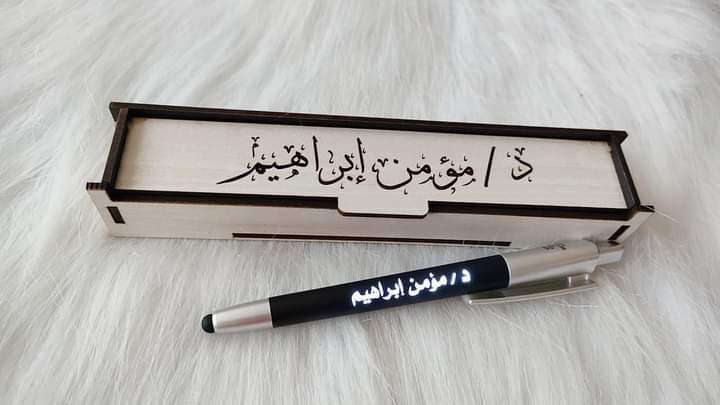 د / مؤمن إبراهيم
د / مؤمن إبراهيم